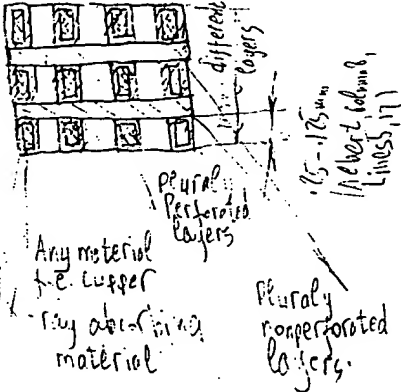 different
layers
.25-.125mm,
(Riebert column 8,
Lines 5, 17)
Plural
Perforated
layers
Any material
f.e. cupper
ray absorbing
material
Pluraly
nonperforated
layers.